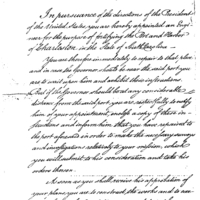 In pursuance of the directions of the President
of the United States, you are hereby appointed an Engi-
neer for the purpose of fortifying the Port and Harbor
of Charleston in the State of South Carolina
You are therefore immediately to repair to that place
and in case the Governor should be near the said port you
are to wait upon him and exhibit these instructions
But if the Governor should be at any considerable
distance from the said port, you are respectfully to notify
him of your appointment, enclose a copy of these in-
structions and inform him that you have repaired to
the port aforesaid in order to make the necessary surveys
and investigations relatively to your mission, which
you will submit to his consideration and take his
orders thereon.
As soon as you shall receive his approbation of
your plans you are to construct the works and to em-